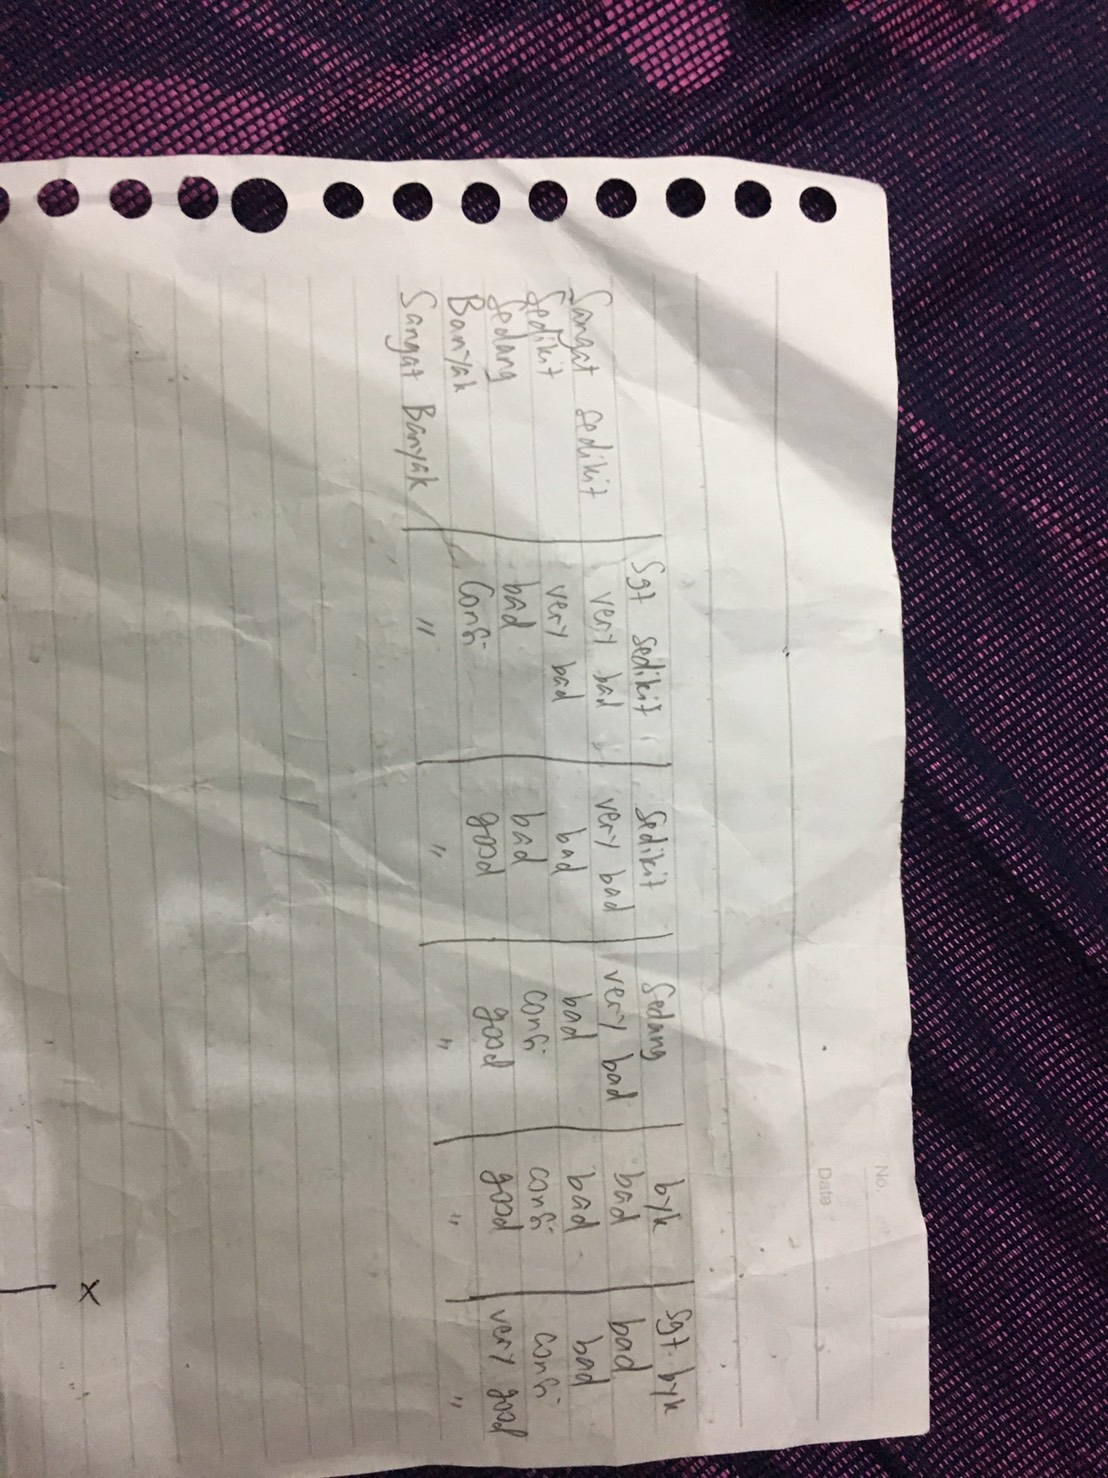 No.
Date
Sgt sedikit | Sedikit | Sedang | byk | Sgt. byk
Sangat sedikit | very bad | very bad | very bad | bad | bad
Sedikit | very bad | bad | bad | bad | bad
Sedang | bad | bad | confi | confi | confi
Banyak | Confi | good | good | good | very good
Sangat Banyak | " | " | " | " | "
x